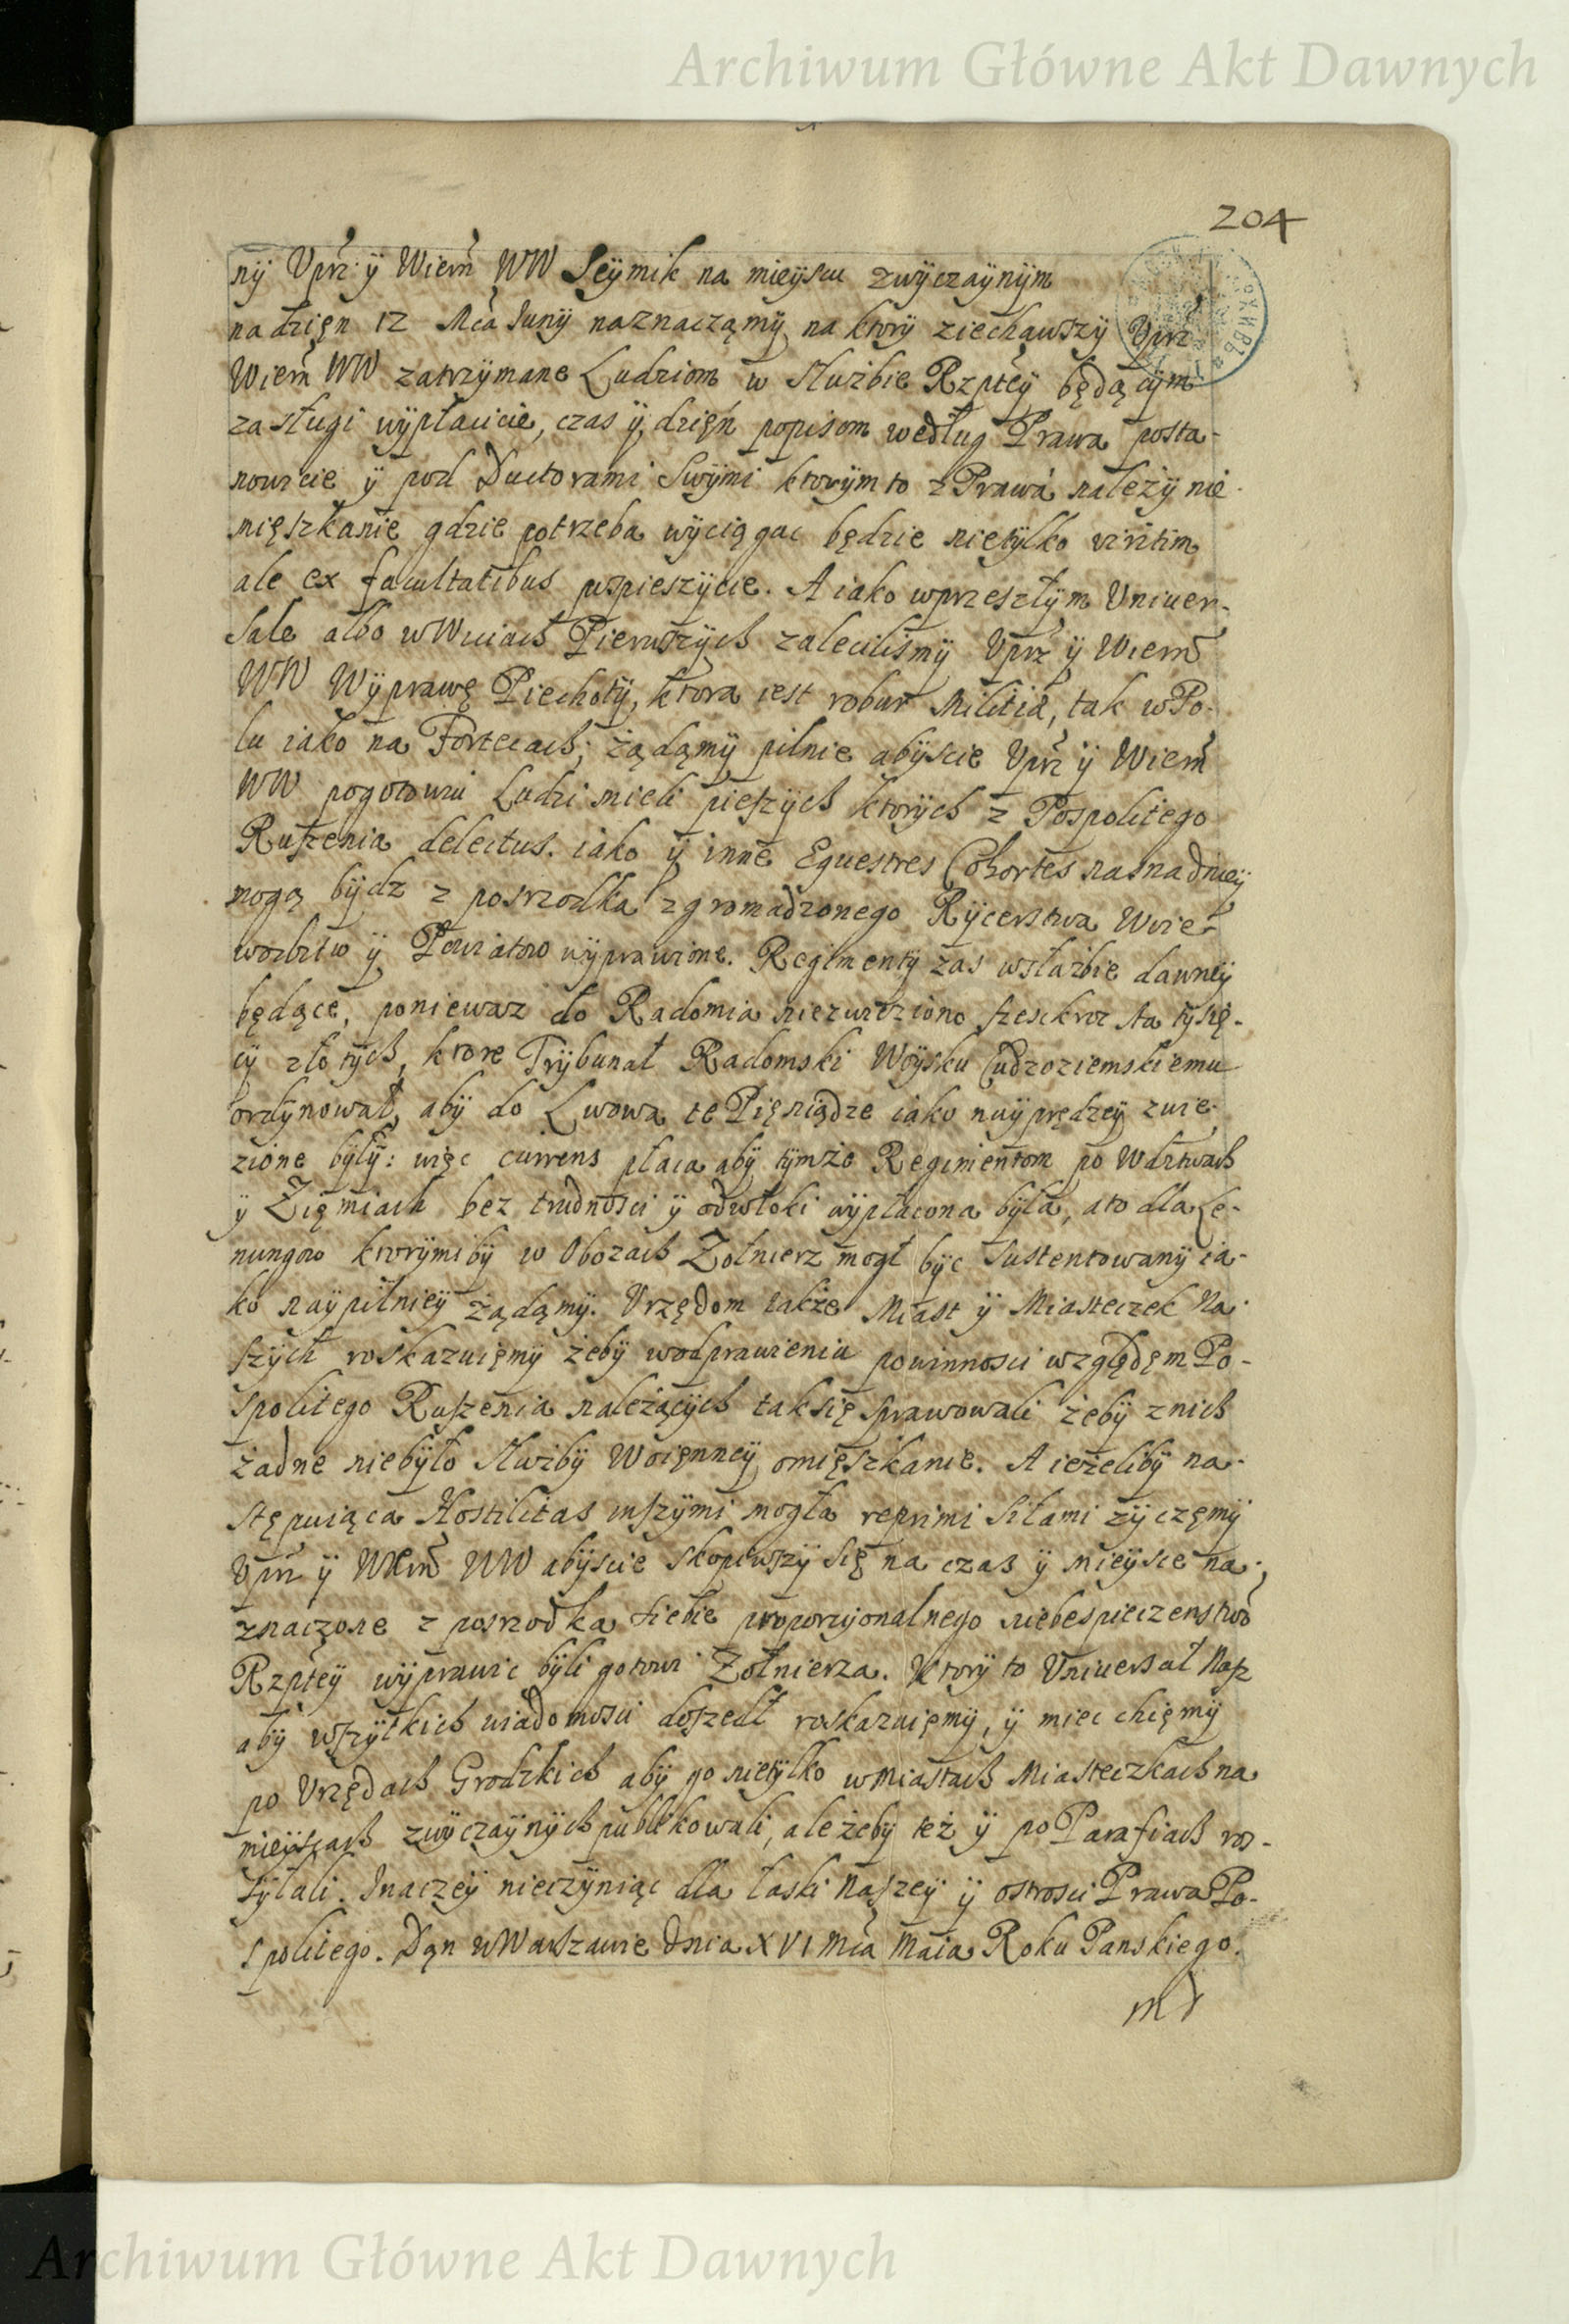 Archiwum Główne Akt Dawnych
204
nÿ Uprz: ÿ Wiern WW Seÿmik na mieÿscu zwÿczaÿnÿm
na dzięn 12 Mca Junÿ naznacząmÿ na ktorÿ ziechawszÿ Uprz
Wiern WW zatrzÿmane Ludziom w Służbie Rzpteÿ będącÿm
zasługi wÿpłacicie, czas ÿ dzięń popisom według Prawa posta-
nowicie ÿ pod Ductorami Swÿmi ktorÿm to z Prawa należÿ nie-
mięszkanie gdzie potrzeba wÿciągac będzie nietÿlko viritim
ale ex facultatibus pospieszÿcie. A iako wprzeszłÿm Uniwer-
sale albo wWiciach Pierwszÿch zalecilismÿ Uprz ÿ Wiern
WW Wÿprawę Piechotÿ, ktora iest robur Militiæ, tak wPo-
lu iako na Fortecach; żądąmÿ pilnie abÿscie Uprz ÿ Wiern
WW pogotowiu Ludzi mieli pieszÿch ktorÿch z Pospolitego
Ruszenia delectus. iako ÿ inne Equestres Cohortes nasnadnieÿ
mogą bÿdz z posrzodka zgromadzonego Rÿcerstwa Woie-
wodztw ÿ Powiatow wÿprawione. Regimentÿ zas wsłużbie dawneÿ
będące, poniewaz do Radomia niezwieziono szesckroc sta tÿsię-
cÿ złotÿch, ktore Trÿbunał Radomski Woÿsku Cudzoziemskiemu
ordÿnował, abÿ do Lwowa te Pięniądze iako naÿprędzeÿ zwie-
zione bÿłÿ: więc currens płaca abÿ tÿmże Regimentom po Wdztwach
ÿ Zięmiach bez trudnosci ÿ odwłoki wÿpłacona bÿła, a to dla Le-
nungow ktorÿmibÿ w Obozach Zołnierz mogł bÿc sustentowanÿ ia-
ko naÿpilnieÿ żądąmÿ. Urzędom także Miast ÿ Miasteczek Na-
szÿch roskazuięmÿ żebÿ wodprawieniu powinnosci względęm Po-
spolitego Ruszenia należącÿch tak się sprawowali żebÿ znich
żadne niebÿło Służbÿ Woięnneÿ omięszkanie. A ieżelibÿ na-
stępuiąca Hostilitas inszÿmi mogła reprimi siłami zÿczęmÿ
Uprz ÿ Wiern WW abÿscie skopiwszÿ się na czas ÿ mieÿsce na-
znaczone z posrzodka siebie proporcÿonalnego niebespieczenstwo
Rzpteÿ wÿprawic bÿli gotowi Zołnierza. Ktorÿ to Uniwersał Nasz
abÿ wszÿtkich wiadomosci doszedł roskazuięmÿ, ÿ miec chcięmÿ
po Urzędach Grodzkich abÿ go nietÿlko wMiastach Miasteczkach na
mieÿscach zwÿczaÿnÿch publikowali, ale żebÿ też ÿ po Parafiach roz-
sÿłali. Inaczeÿ nieczÿniąc dla łaski Naszeÿ ÿ ostrosci Prawa Po-
spolitego. Dąn w Warszawie Dnia XVI Mca Maia Roku Panskiego.
Archiwum Główne Akt Dawnych